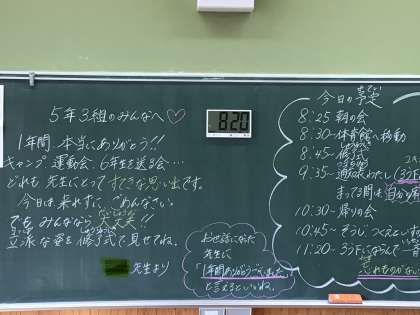 5年3組のみんなへ♡
1年間 本当にありがとう!!
キャンプ 運動会 6年生を送る会…
どれも 先生にとって すてきな思い出です。
今日は来れずに、ごめんなさい
でも みんななら 大丈夫!!
だいじょうぶ
立派な姿を 修了式で見せてね。
先生より
8:20
お世話になった
先生に
「1年間ありがとうございました」
と言えるといいね。
今日の予定
よてい
8:25 朝の会
8:30~ 体育館へ移動
8:45~ 修了式
9:35~ 通知表わたし
まってる間は 自分
10:30~ 帰りの会
10:45~ そうじ
11:20~